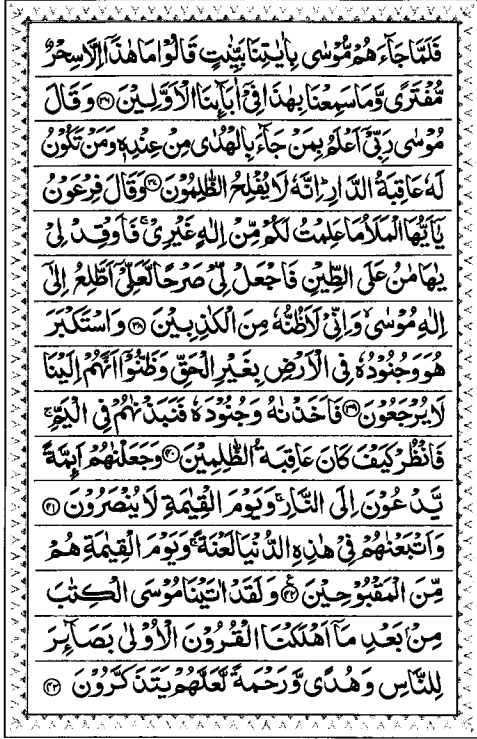 فَلَمَّا جَآءَهُمْ مُّوْسٰى بِاٰيٰتِنَا بَيِّنٰتٍ قَالُوْا مَا هٰذَاۤ اِلَّا سِحْرٌ
مُّفْتَرًى وَّمَا سَمِعْنَا بِهٰذَا فِيْۤ اٰبَآئِنَا الْاَوَّلِيْنَ ﴿۳۶﴾ وَقَالَ
مُوْسٰى رَبِّيْۤ اَعْلَمُ بِمَنْ جَآءَ بِالْهُدٰى مِنْ عِنْدِهٖ وَمَنْ تَكُوْنُ
لَهٗ عَاقِبَةُ الدَّارِ ؕ اِنَّهٗ لَا يُفْلِحُ الظّٰلِمُوْنَ ﴿۳۷﴾ وَقَالَ فِرْعَوْنُ
يٰۤاَيُّهَا الْمَلَاُ مَا عَلِمْتُ لَكُمْ مِّنْ اِلٰهٍ غَيْرِيْ ۚ فَاَوْقِدْ لِيْ
يٰهَامٰنُ عَلَى الطِّيْنِ فَاجْعَلْ لِّيْ صَرْحًا لَّعَلِّيْۤ اَطَّلِعُ اِلٰۤى
اِلٰهِ مُوْسٰى ۙ وَاِنِّيْ لَاَظُنُّهٗ مِنَ الْكٰذِبِيْنَ ﴿۳۸﴾ وَاسْتَكْبَرَ
هُوَ وَجُنُوْدُهٗ فِي الْاَرْضِ بِغَيْرِ الْحَقِّ وَظَنُّوْۤا اَنَّهُمْ اِلَيْنَا
لَا يُرْجَعُوْنَ ﴿۳۹﴾ فَاَخَذْنٰهُ وَجُنُوْدَهٗ فَنَبَذْنٰهُمْ فِي الْيَمِّ ۚ
فَانْظُرْ كَيْفَ كَانَ عَاقِبَةُ الظّٰلِمِيْنَ ﴿۴۰﴾ وَجَعَلْنٰهُمْ اَئِمَّةً
يَّدْعُوْنَ اِلَى النَّارِ ۚ وَيَوْمَ الْقِيٰمَةِ لَا يُنْصَرُوْنَ ﴿۴۱﴾
وَاَتْبَعْنٰهُمْ فِيْ هٰذِهِ الدُّنْيَا لَعْنَةً ۚ وَيَوْمَ الْقِيٰمَةِ هُمْ
مِّنَ الْمَقْبُوْحِيْنَ ﴿۴۲﴾ۧ وَلَقَدْ اٰتَيْنَا مُوْسَى الْكِتٰبَ
مِنْۢ بَعْدِ مَاۤ اَهْلَكْنَا الْقُرُوْنَ الْاُوْلٰى بَصَآئِرَ
لِلنَّاسِ وَهُدًى وَّرَحْمَةً لَّعَلَّهُمْ يَتَذَكَّرُوْنَ ﴿۴۳﴾